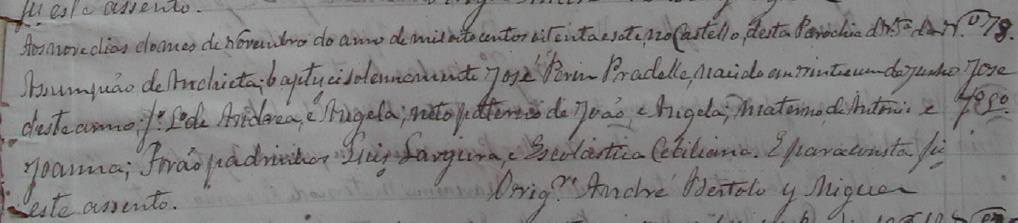 fiz este assento.
Aos nove dias do mes de Novembro do anno de mil oito centos setenta e sete, no Castello, desta Parochia de N. Sª. da Nº. 78.
Assumpção de Anchieta; baptycei solennemente José Perin Pradelle, nacido em trinta e um de Junho Jose
deste anno, fº. Lº. de Andrea, e Angela; neto paterno de João, e Angela; materno de Antonio e
Joanna; Forão padrinhos Luis Sargura, e Escolástica Ceciliana. E para consta fiz
este assento. Vrigº. André Bertolo y Miguer